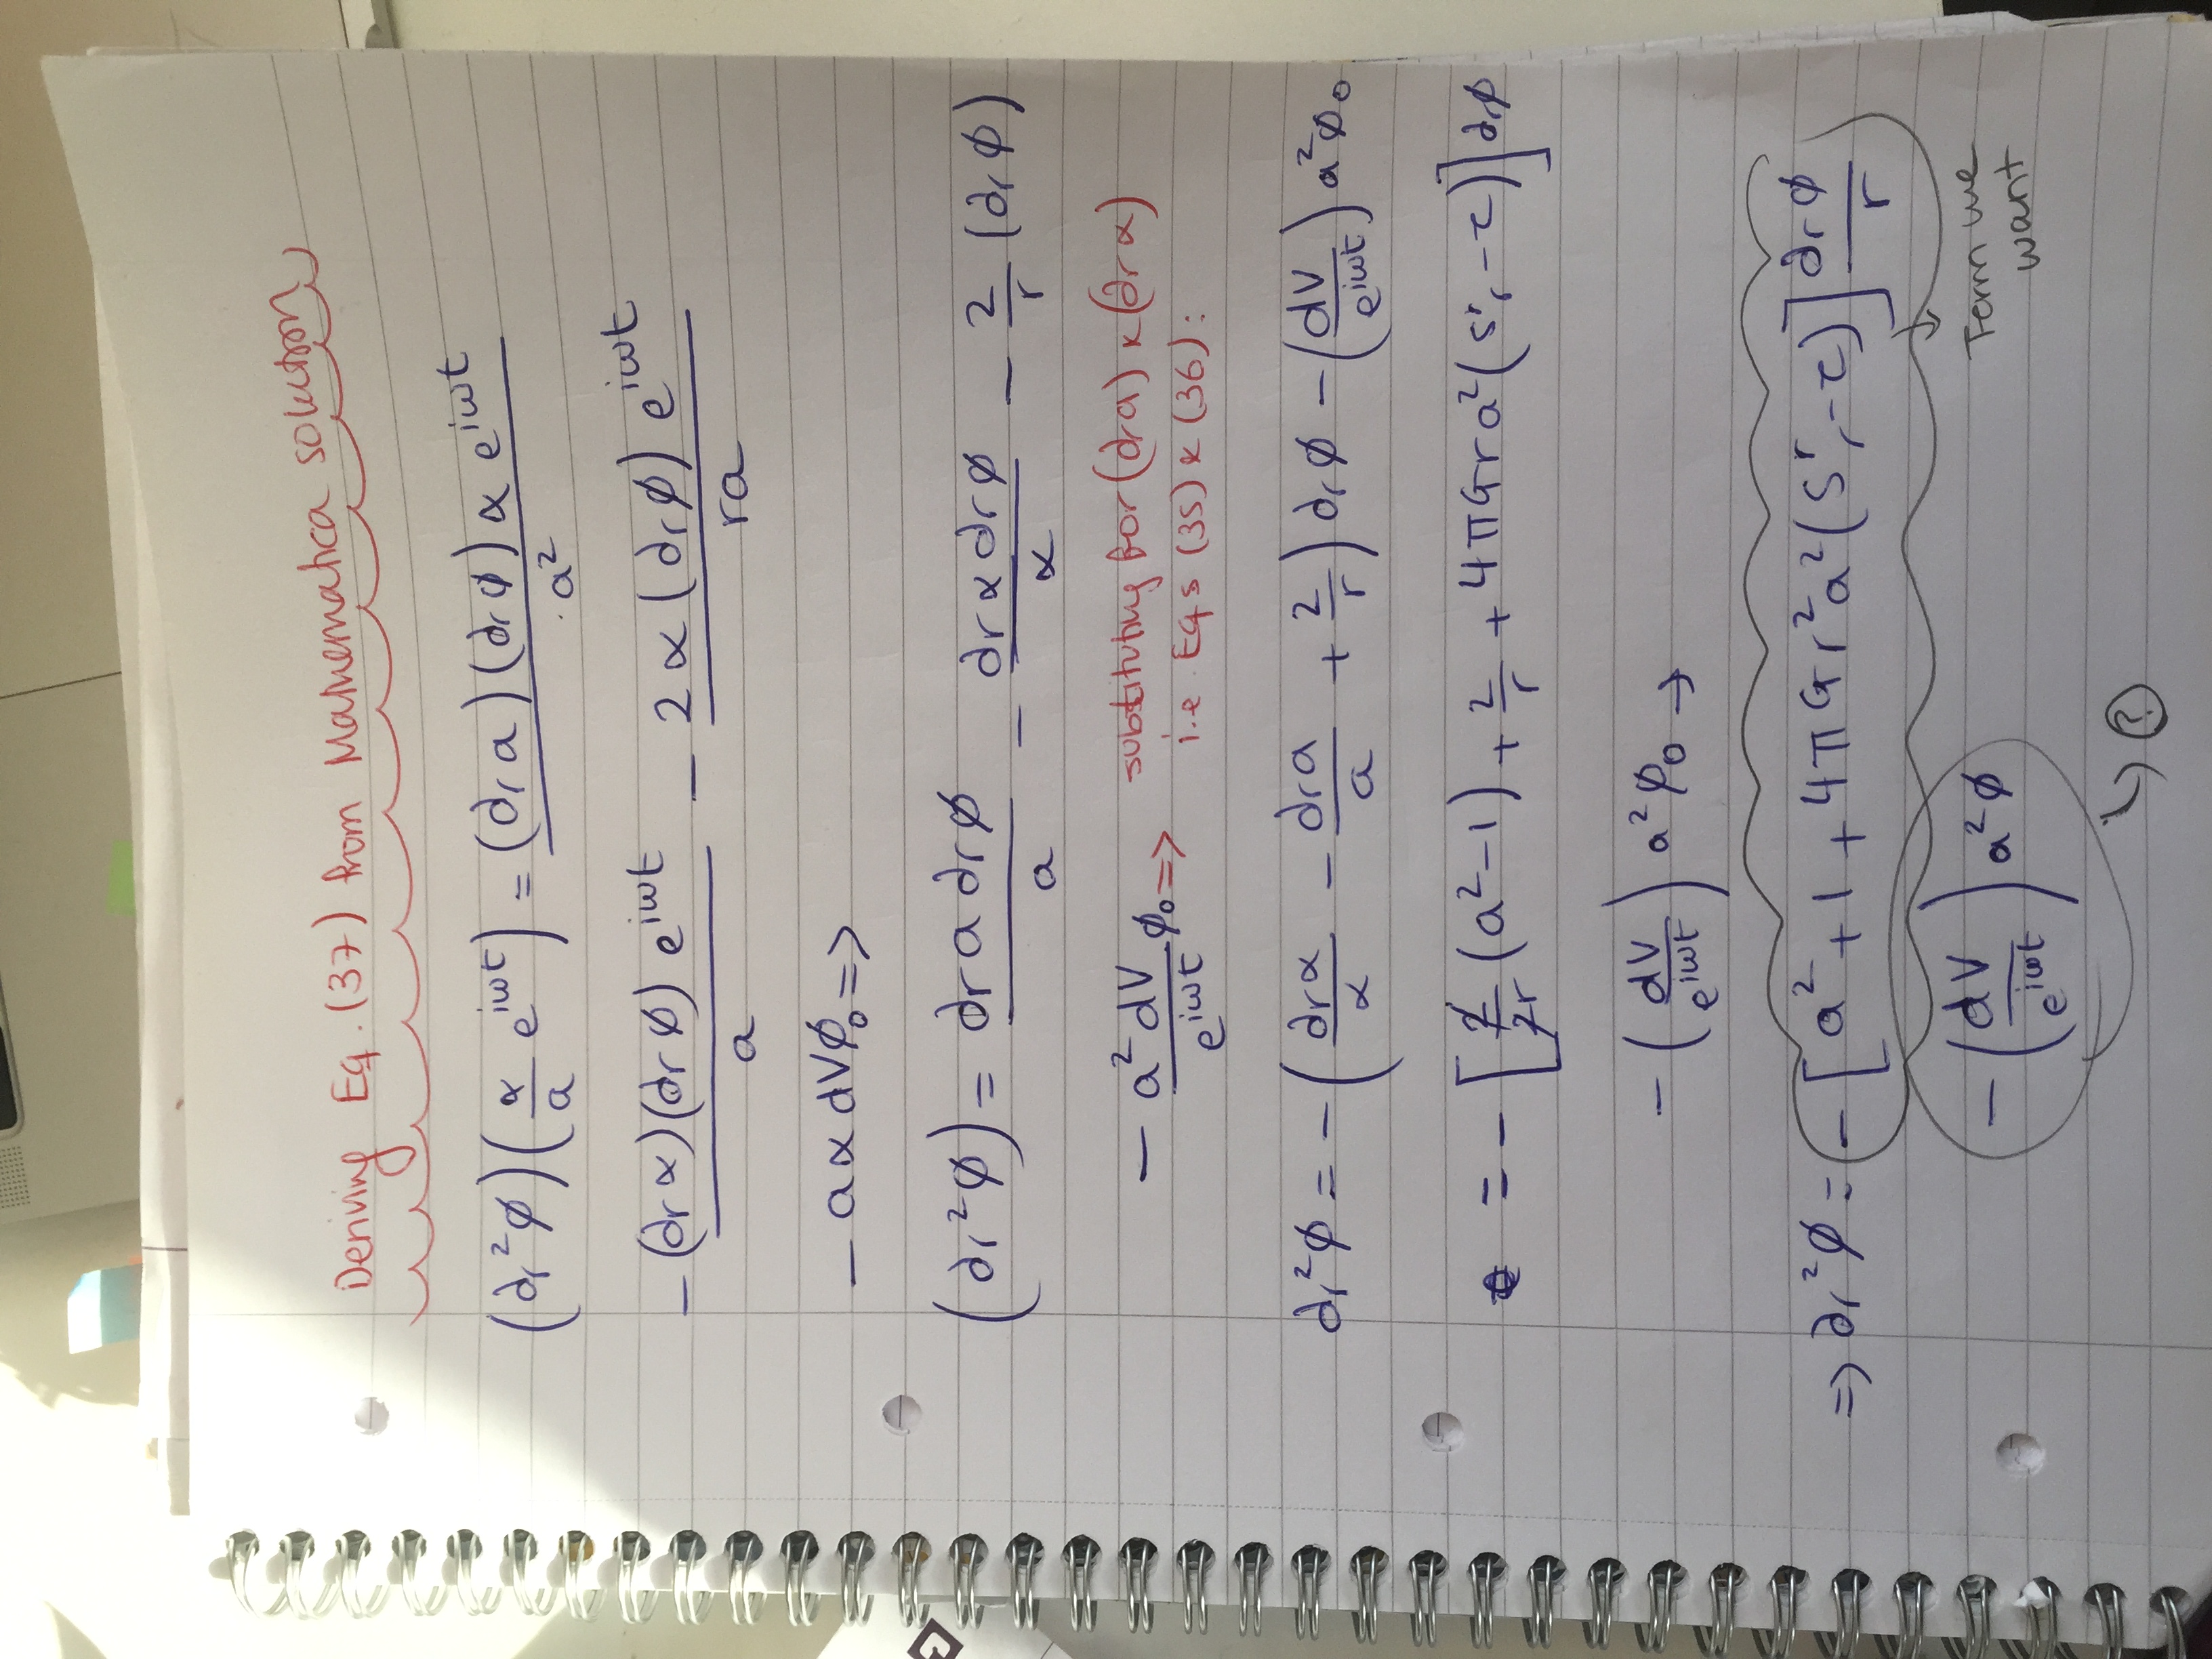 Deriving Eq. (37) from Mathematica solution
(∂r²φ)(α/a e^{iωt}) = (∂r a)(∂r φ) α e^{iωt} / a²
− (∂r α)(∂r φ) e^{iωt} / a − 2α(∂r φ) e^{iωt} / ra
− aα dVφ₀ =>
(∂r²φ) = ∂r a ∂r φ / a − ∂r α ∂r φ / α − 2/r (∂r φ)
− a² dV / e^{iωt} φ₀ => substituting for (∂r a) & (∂r α)
i.e. Eqs (35) & (36):
∂r²φ = − (∂r α / α − ∂r a / a + 2/r) ∂r φ − (dV / e^{iωt}) a² φ₀
= − [2/2r (a² − 1) + 2/r + 4πGra² (S^r_r − τ)] ∂r φ
− (dV / e^{iωt}) a² φ₀ →
=> ∂r²φ = − [a² + 1 + 4πGr²a² (S^r_r − τ)] ∂r φ / r
− (dV / e^{iωt}) a² φ
Term we
want
?